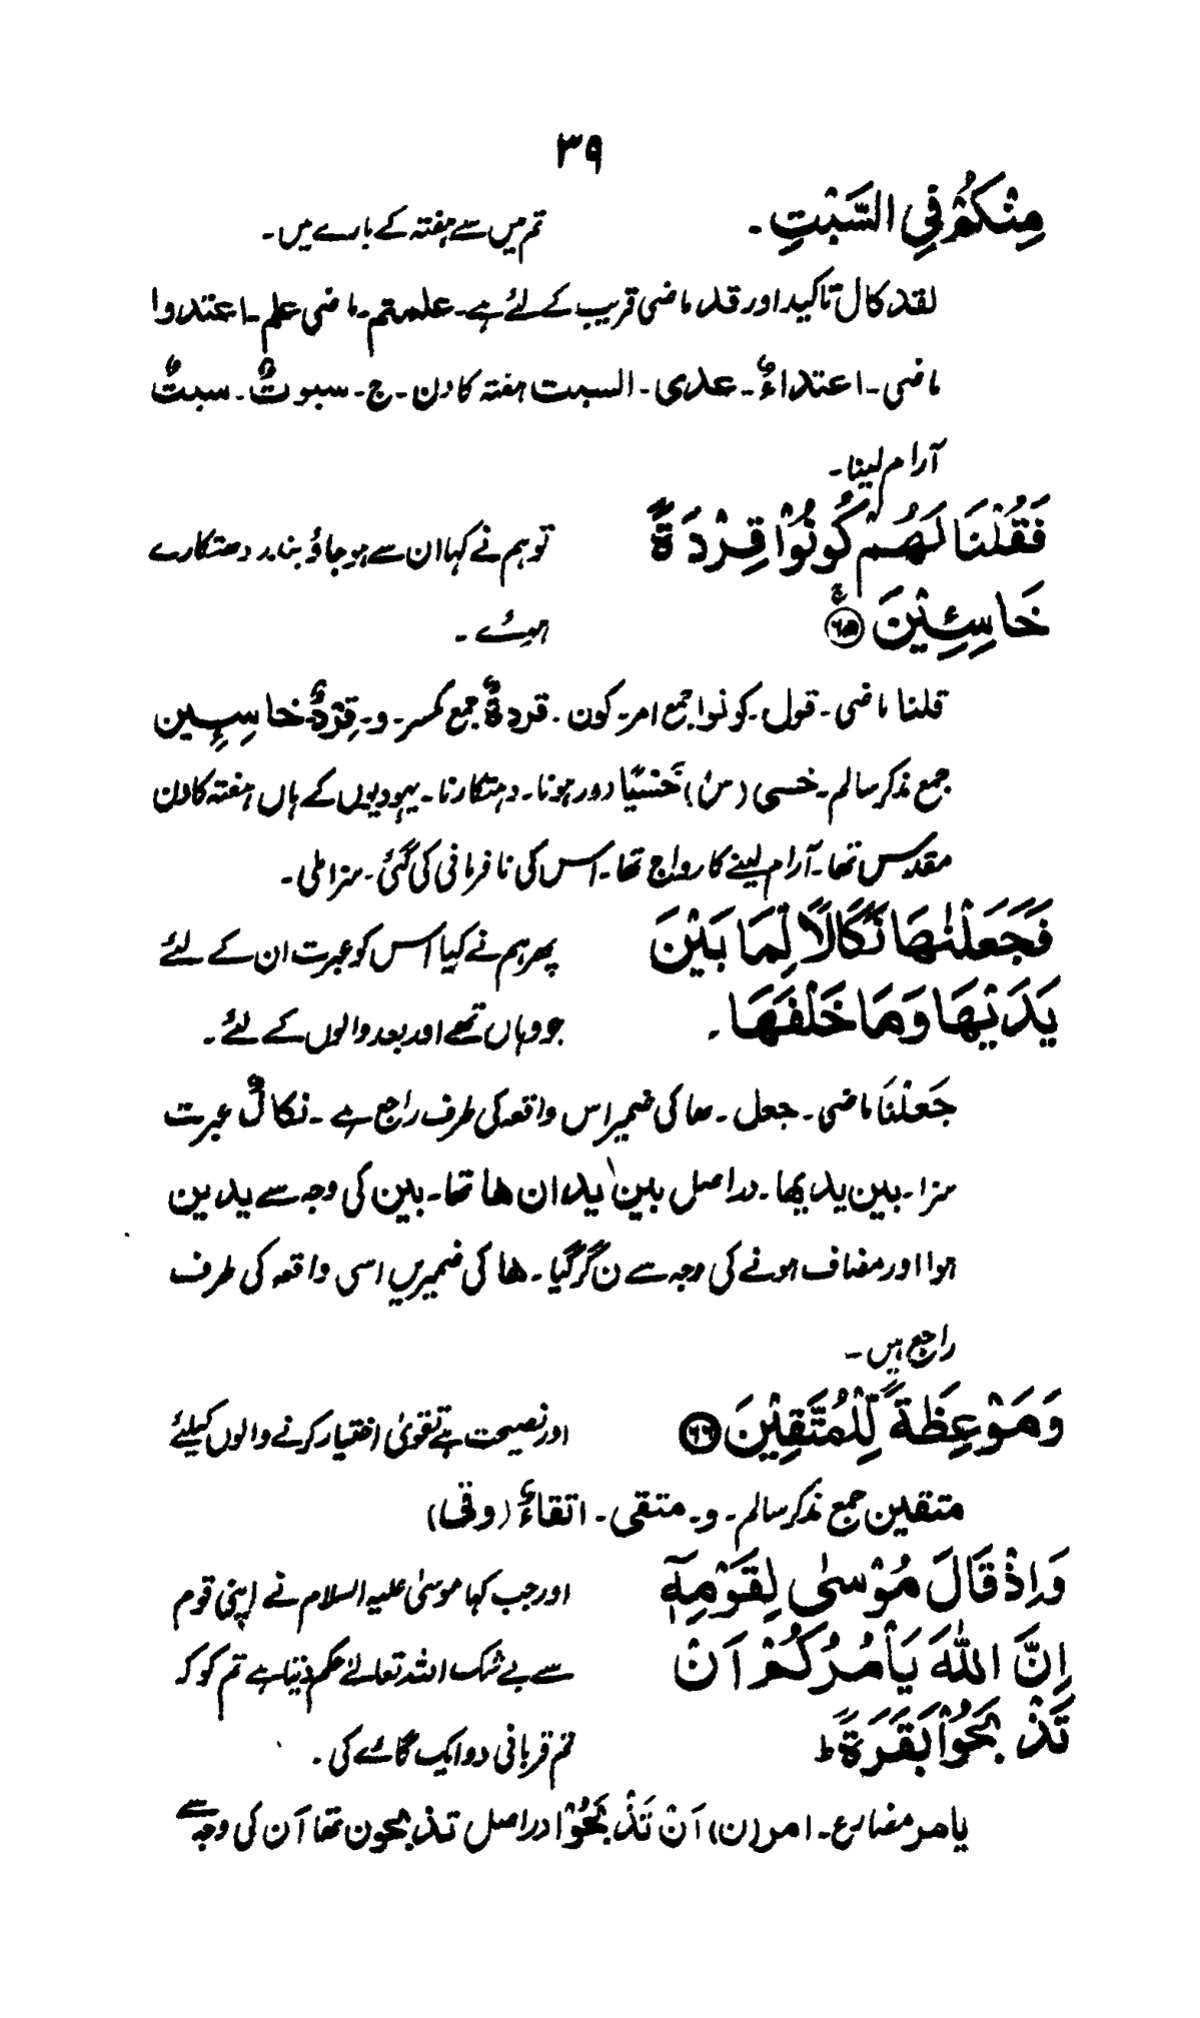 ۳۹
مِنْكُمْ فِی السَّبْتِ۔ تم میں سے ہفتہ کے بارے میں۔
لقد کا ل تاکید اور قد ماضی قریب کے لئے ہے۔ علمتم۔ ماضی علم۔ اعتدوا
ماضی۔ اعتداءٌ۔ عدی۔ السبت ہفتہ کا دن۔ ج۔ سبوتٌ۔ سبتٌ
آرام لینا۔
فَقُلْنَا لَهُمْ كُوْنُوْا قِرْدَةً تو ہم نے کہا ان سے ہو جاؤ بندر دھتکارے
خَاسِئِيْنَ ﴿۶۵﴾ ع ہوئے۔
قلنا ماضی۔ قول۔ کونوا جمع امر۔ کون۔ قردةٌ جمع مکسر۔ و۔ قِرْدٌ خاسِئِین
جمع مذکر سالم۔ خسی (س) خَسْئًا دور ہونا۔ دہتکارنا۔ یہودیوں کے ہاں ہفتہ کا دن
مقدس تھا۔ آرام لینے کا رواج تھا۔ اس کی نافرمانی کی گئی۔ سزا ملی۔
فَجَعَلْنٰهَا نَكَالًا لِّمَا بَيْنَ پھر ہم نے کیا اس کو عبرت ان کے لئے
يَدَيْهَا وَمَا خَلْفَهَا۔ جو وہاں تھے اور بعد والوں کے لئے۔
جَعَلْنَا ماضی۔ جعل۔ ھا کی ضمیر اس واقعہ کی طرف راجع ہے۔ نکالٌ عبرت
سزا۔ بین یدیھا۔ دراصل بین یدان ھا تھا۔ بین کی وجہ سے یدین
ہوا اور مضاف ہونے کی وجہ سے ن گر گیا۔ ھا کی ضمیریں اسی واقعہ کی طرف
راجع ہیں۔
وَمَوْعِظَةً لِّلْمُتَّقِيْنَ ﴿۶۶﴾ اور نصیحت ہے تقویٰ اختیار کرنے والوں کیلئے
متقین جمع مذکر سالم۔ و۔ متقی۔ اتقاءٌ (وقی)
وَاِذْ قَالَ مُوْسٰی لِقَوْمِهٖٓ اور جب کہا موسیٰ علیہ السلام نے اپنی قوم
اِنَّ اللّٰهَ يَاْمُرُكُمْ اَنْ سے بے شک اللہ تعالےٰ حکم دیتا ہے تم کو کہ
تَذْبَحُوْا بَقَرَةً ط تم قربانی دو ایک گائے کی۔
یامر مضارع۔ امر (ن) اَنْ تَذْبَحُوْا دراصل تذبحون تھا اَن کی وجہ سے